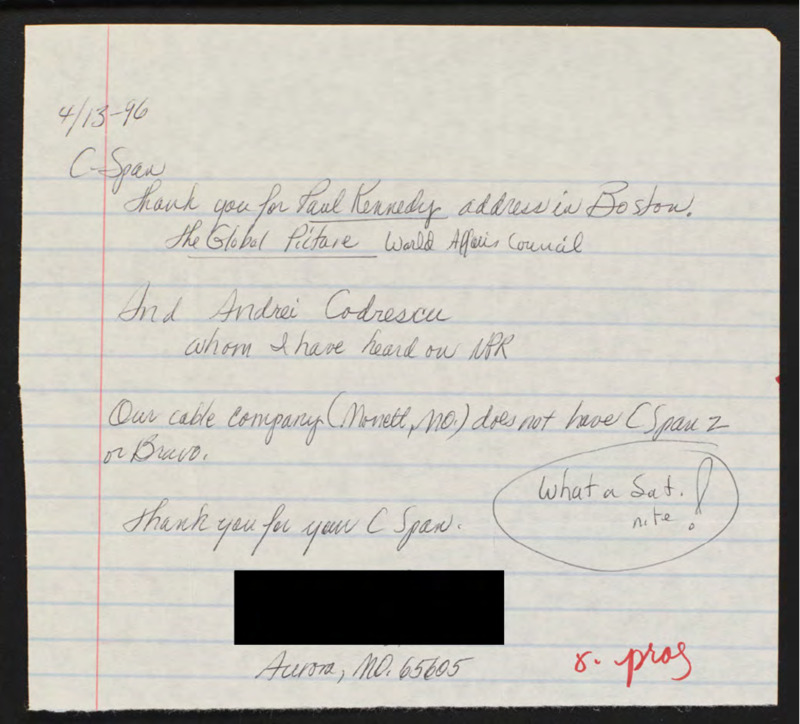 4/13-96
C-Span
Thank you for Paul Kennedy address in Boston.
The Global Picture World Affairs Council
And Andrei Codrescu
whom I have heard on NPR
Our cable company (Monett, MO.) does not have C Span 2
or Bravo.
What a Sat.
nite!
Thank you for your C Span.
Aurora, MO. 65605
r. prog